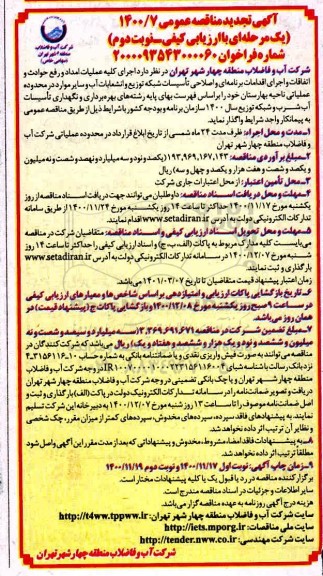 آگهی تجدید مناقصه عمومی ۱۴۰۰/۷
(یک مرحله‌ای با ارزیابی کیفی - نوبت دوم)
شماره فراخوان ۲۰۰۰۰۹۳۵۶۳۰۰۰۰۶۰
شرکت آب و فاضلاب
منطقه ۴ تهران
(سهامی خاص)
شرکت آب و فاضلاب منطقه چهار شهر تهران در نظر دارد اجرای کلیه عملیات امداد و رفع حوادث و
اتفاقات و اجرای اقدامات برنامه‌ای و اصلاحی تأسیسات شبکه توزیع و انشعابات آب و سایر موارد در محدوده
عملیاتی ناحیه بهارستان خود را بر اساس فهرست بهای پایه رشته‌های بهره‌برداری و نگهداری تأسیسات
آب شرب و شبکه توزیع سال ۱۴۰۰ سازمان برنامه و بودجه کشور با شرایط ذیل از طریق مناقصه عمومی
به پیمانکار واجد شرایط واگذار نماید.
۱- مدت و محل اجراء: ظرف مدت ۲۴ ماه شمسی از تاریخ ابلاغ قرارداد در محدوده عملیاتی شرکت آب و
فاضلاب منطقه چهار شهر تهران
۲- مبلغ برآوردی مناقصه: ۱۹۳,۹۶۹,۱۶۷,۱۴۳ (یکصد و نود و سه میلیارد و نهصد و شصت و نه میلیون
و یکصد و شصت و هفت هزار و یکصد و چهل و سه) ریال
۳- محل تأمین اعتبار: از محل اعتبارات جاری شرکت
۴- مهلت و محل دریافت اسناد مناقصه: داوطلبان می‌توانند جهت دریافت اسناد مناقصه از روز
یکشنبه مورخ ۱۴۰۰/۱۱/۱۷ حداکثر تا ساعت ۱۴ روز یکشنبه مورخ ۱۴۰۰/۱۱/۲۴ از طریق سامانه
تدارکات الکترونیکی دولت به آدرس www.setadiran.ir اقدام نمایند.
۵- مهلت و محل تحویل اسناد ارزیابی کیفی و اسناد مناقصه: متقاضیان شرکت در مناقصه
می‌بایست کلیه مدارک مربوط به پاکات (الف، ب، ج) و اسناد ارزیابی کیفی را حداکثر تا ساعت ۱۴ روز
شنبه مورخ ۱۴۰۰/۱۲/۰۷ در سامانه تدارکات الکترونیکی دولت به آدرس www.setadiran.ir
بارگذاری و ثبت نمایند.
زمان اعتبار پیشنهاد قیمت متقاضیان تا تاریخ ۱۴۰۱/۰۳/۰۷ می‌باشد.
۶- تاریخ بازگشایی پاکات ارزیابی و امتیازدهی بر اساس شاخص‌ها و معیارهای ارزیابی کیفی
در ساعت ۹ صبح روز یکشنبه مورخ ۱۴۰۰/۱۲/۰۸ و بازگشایی پاکات ج (پیشنهاد قیمت) در
همان روز می‌باشد.
۷- مبلغ تضمین شرکت در مناقصه ۳,۳۶۹,۶۹۱,۶۷۱ (سه میلیارد و سیصد و شصت و نه
میلیون و ششصد و نود و یک هزار و ششصد و هفتاد و یک) ریال می‌باشد که شرکت کنندگان در
مناقصه می‌توانند به صورت فیش واریزی نقدی و یا ضمانتنامه بانکی به شماره حساب
نزد بانک رسالت با شناسه شبای در وجه شرکت آب و فاضلاب
منطقه چهار شهر تهران و یا چک بانکی تضمینی در وجه شرکت آب و فاضلاب منطقه چهار شهر تهران
دریافت و تصویر ضمانتنامه را در سامانه تدارکات الکترونیک دولت در پاکت (الف) بارگذاری و ثبت و
اصل ضمانتنامه موصوف را تا ساعت ۱۳ روز شنبه مورخ ۱۴۰۰/۱۲/۰۷ به دبیرخانه این شرکت تسلیم
نمایند. به پیشنهادهای فاقد سپرده، سپرده‌های مخدوش، سپرده‌های کمتر از میزان مقرر، چک شخصی
و نظایر آن ترتیب اثر داده نخواهد شد.
۸- به پیشنهادات فاقد امضاء، مشروط، مخدوش و پیشنهاداتی که بعد از مدت مقرر این آگهی واصل شود
مطلقا ترتیب اثر داده نخواهد شد.
۹- زمان چاپ آگهی: نوبت اول ۱۴۰۰/۱۱/۱۷ و نوبت دوم ۱۴۰۰/۱۱/۱۹
برگزار کننده مناقصه در رد یا قبول یک یا کلیه پیشنهادات مختار است.
سایر اطلاعات و جزئیات در اسناد مناقصه مندرج است.
هزینه درج آگهی روزنامه به عهده مناقصه گزار می‌باشد.
سایت شرکت آب و فاضلاب منطقه چهار شهر تهران: http://t4ww.tppww.ir
سایت ملی مناقصات: http://iets.mporg.ir
سایت شرکت مهندسی: http://tender.nww.co.ir
شرکت آب و فاضلاب منطقه چهار شهر تهران